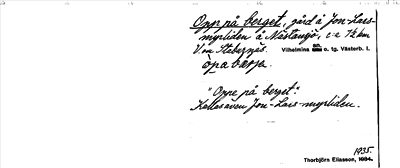 Opp på berget, gård å Jon-Lars-
myrliden å Nästansjö, c:a 1½ km
V om Stabergnäs. Vilhelmina sn o. tg. Västerb. l.
òpa bærja.
"Oppe på berget".
Kallas även Jon-Lars-myrliden.
1935.
Thorbjörn Eliasson, 1934.